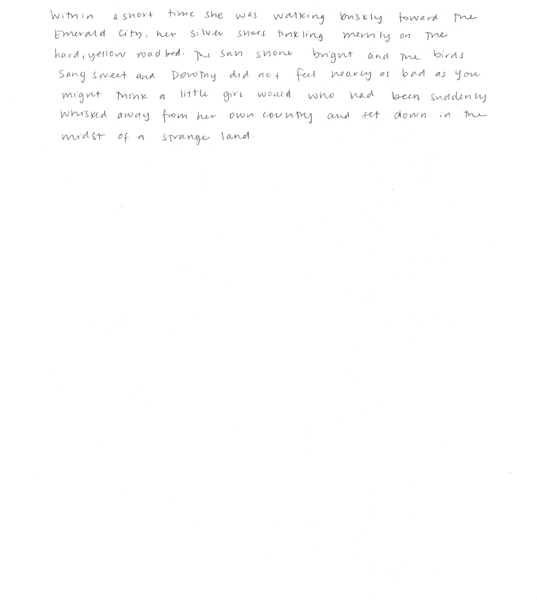 Within a short time she was walking briskly toward the
Emerald City, her silver shoes tinkling merrily on the
hard, yellow roadbed. The sun shone bright and the birds
sang sweet and Dorothy did not feel nearly as bad as you
might think a little girl would who had been suddenly
whisked away from her own country and set down in the
midst of a strange land.